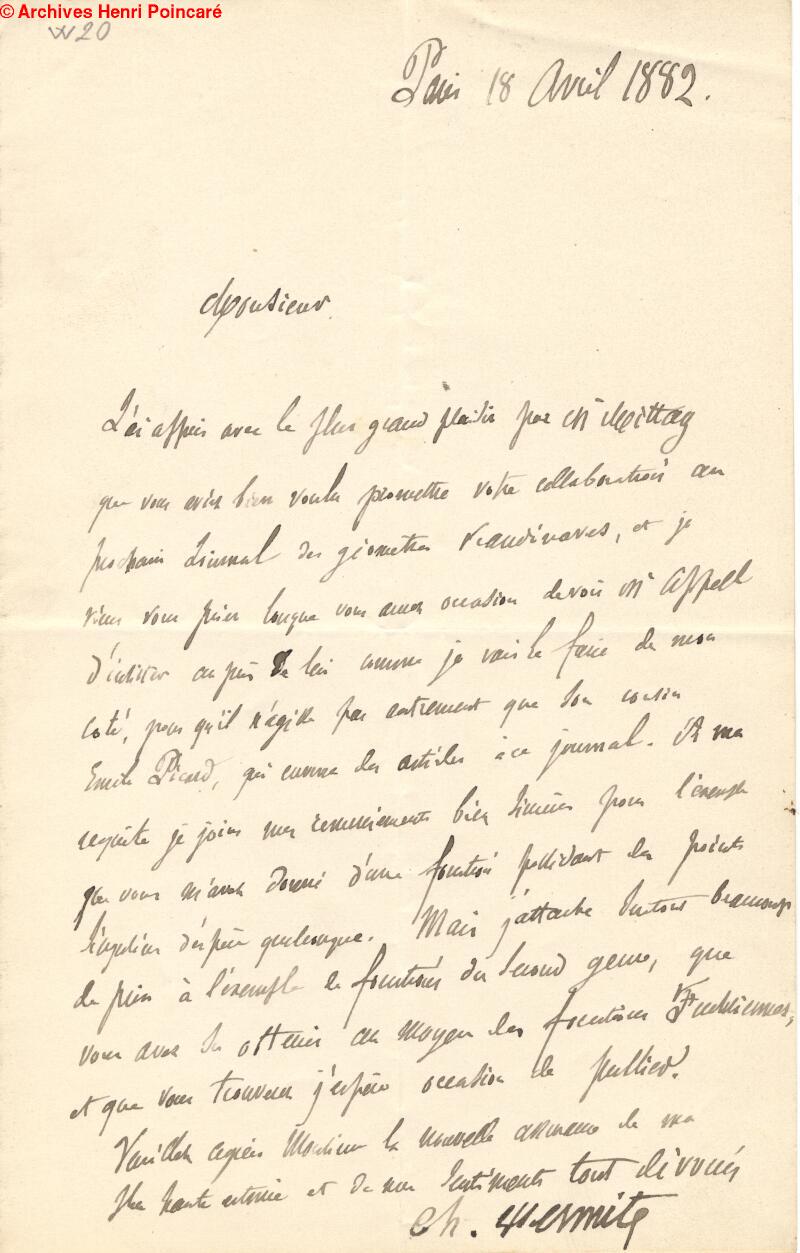 © Archives Henri Poincaré
20
Paris 18 Avril 1882.
Monsieur
J'ai appris avec le plus grand plaisir par Mr Mittag
que vous aviez bien voulu promettre votre collaboration au
prochain Journal des géomètres scandinaves, et je
viens vous prier lorsque vous aurez occasion de voir Mr Appell
d'insister auprès de lui comme je vais le faire de mon
coté, pour qu'il n'agisse pas autrement que son cousin
Emile Picard, qui envoie des articles à ce journal. A ma
requête je joins mes remerciements bien sincères pour l'exemple
que vous m'avez donné d'une fonction possédant des points
singuliers d'espèce quelconque. Mais j'attache surtout beaucoup
de prix à l'exemple de fonctions du second genre, que
vous avez su obtenir au moyen des fonctions Fuchsiennes,
et que vous trouverez j'espère occasion de publier.
Veuillez agréer Monsieur la nouvelle assurance de ma
plus haute estime et de mes sentiments tout dévoués
Ch. Hermite